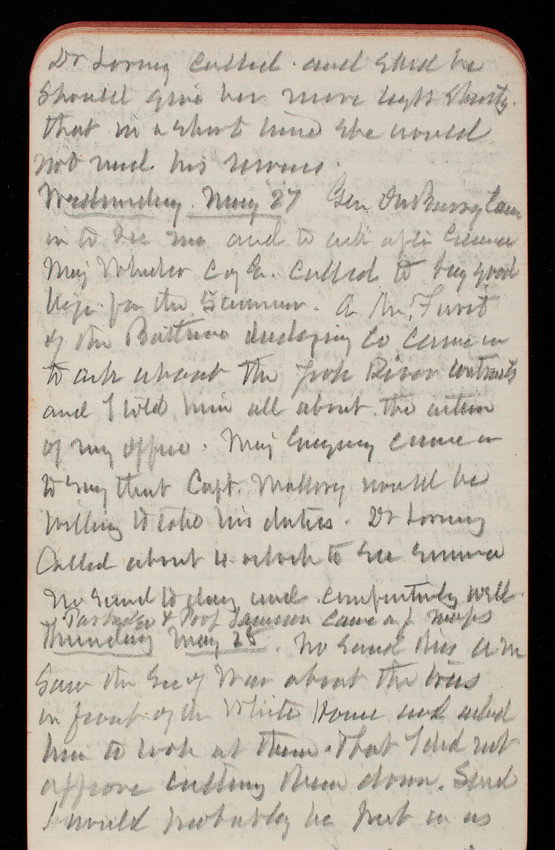 Dr Loring called and said he
should give her more light shortly.
that in a short time she would
not need his services.
Wednesday May 27 Gen came
in to see me and to ask after Emma
Maj Wheeler C of E. called to say good
bye for the Summer. A Mr.
of the Company came in
to ask about the Fox River contracts
and I told him all about the action
of my office. Maj Gregory came in
to say that Capt. Mallory would be
willing to take his duties. Dr Loring
Called about 4 oclock to see Emma
No Sand to day and comfortably well.
& Prof came
Thursday May 28. No Sand this AM
Saw the Sec of War about the trees
in front of the White House and asked
him to look at them. that I did not
approve cutting them down. Said
I would probably be put in as